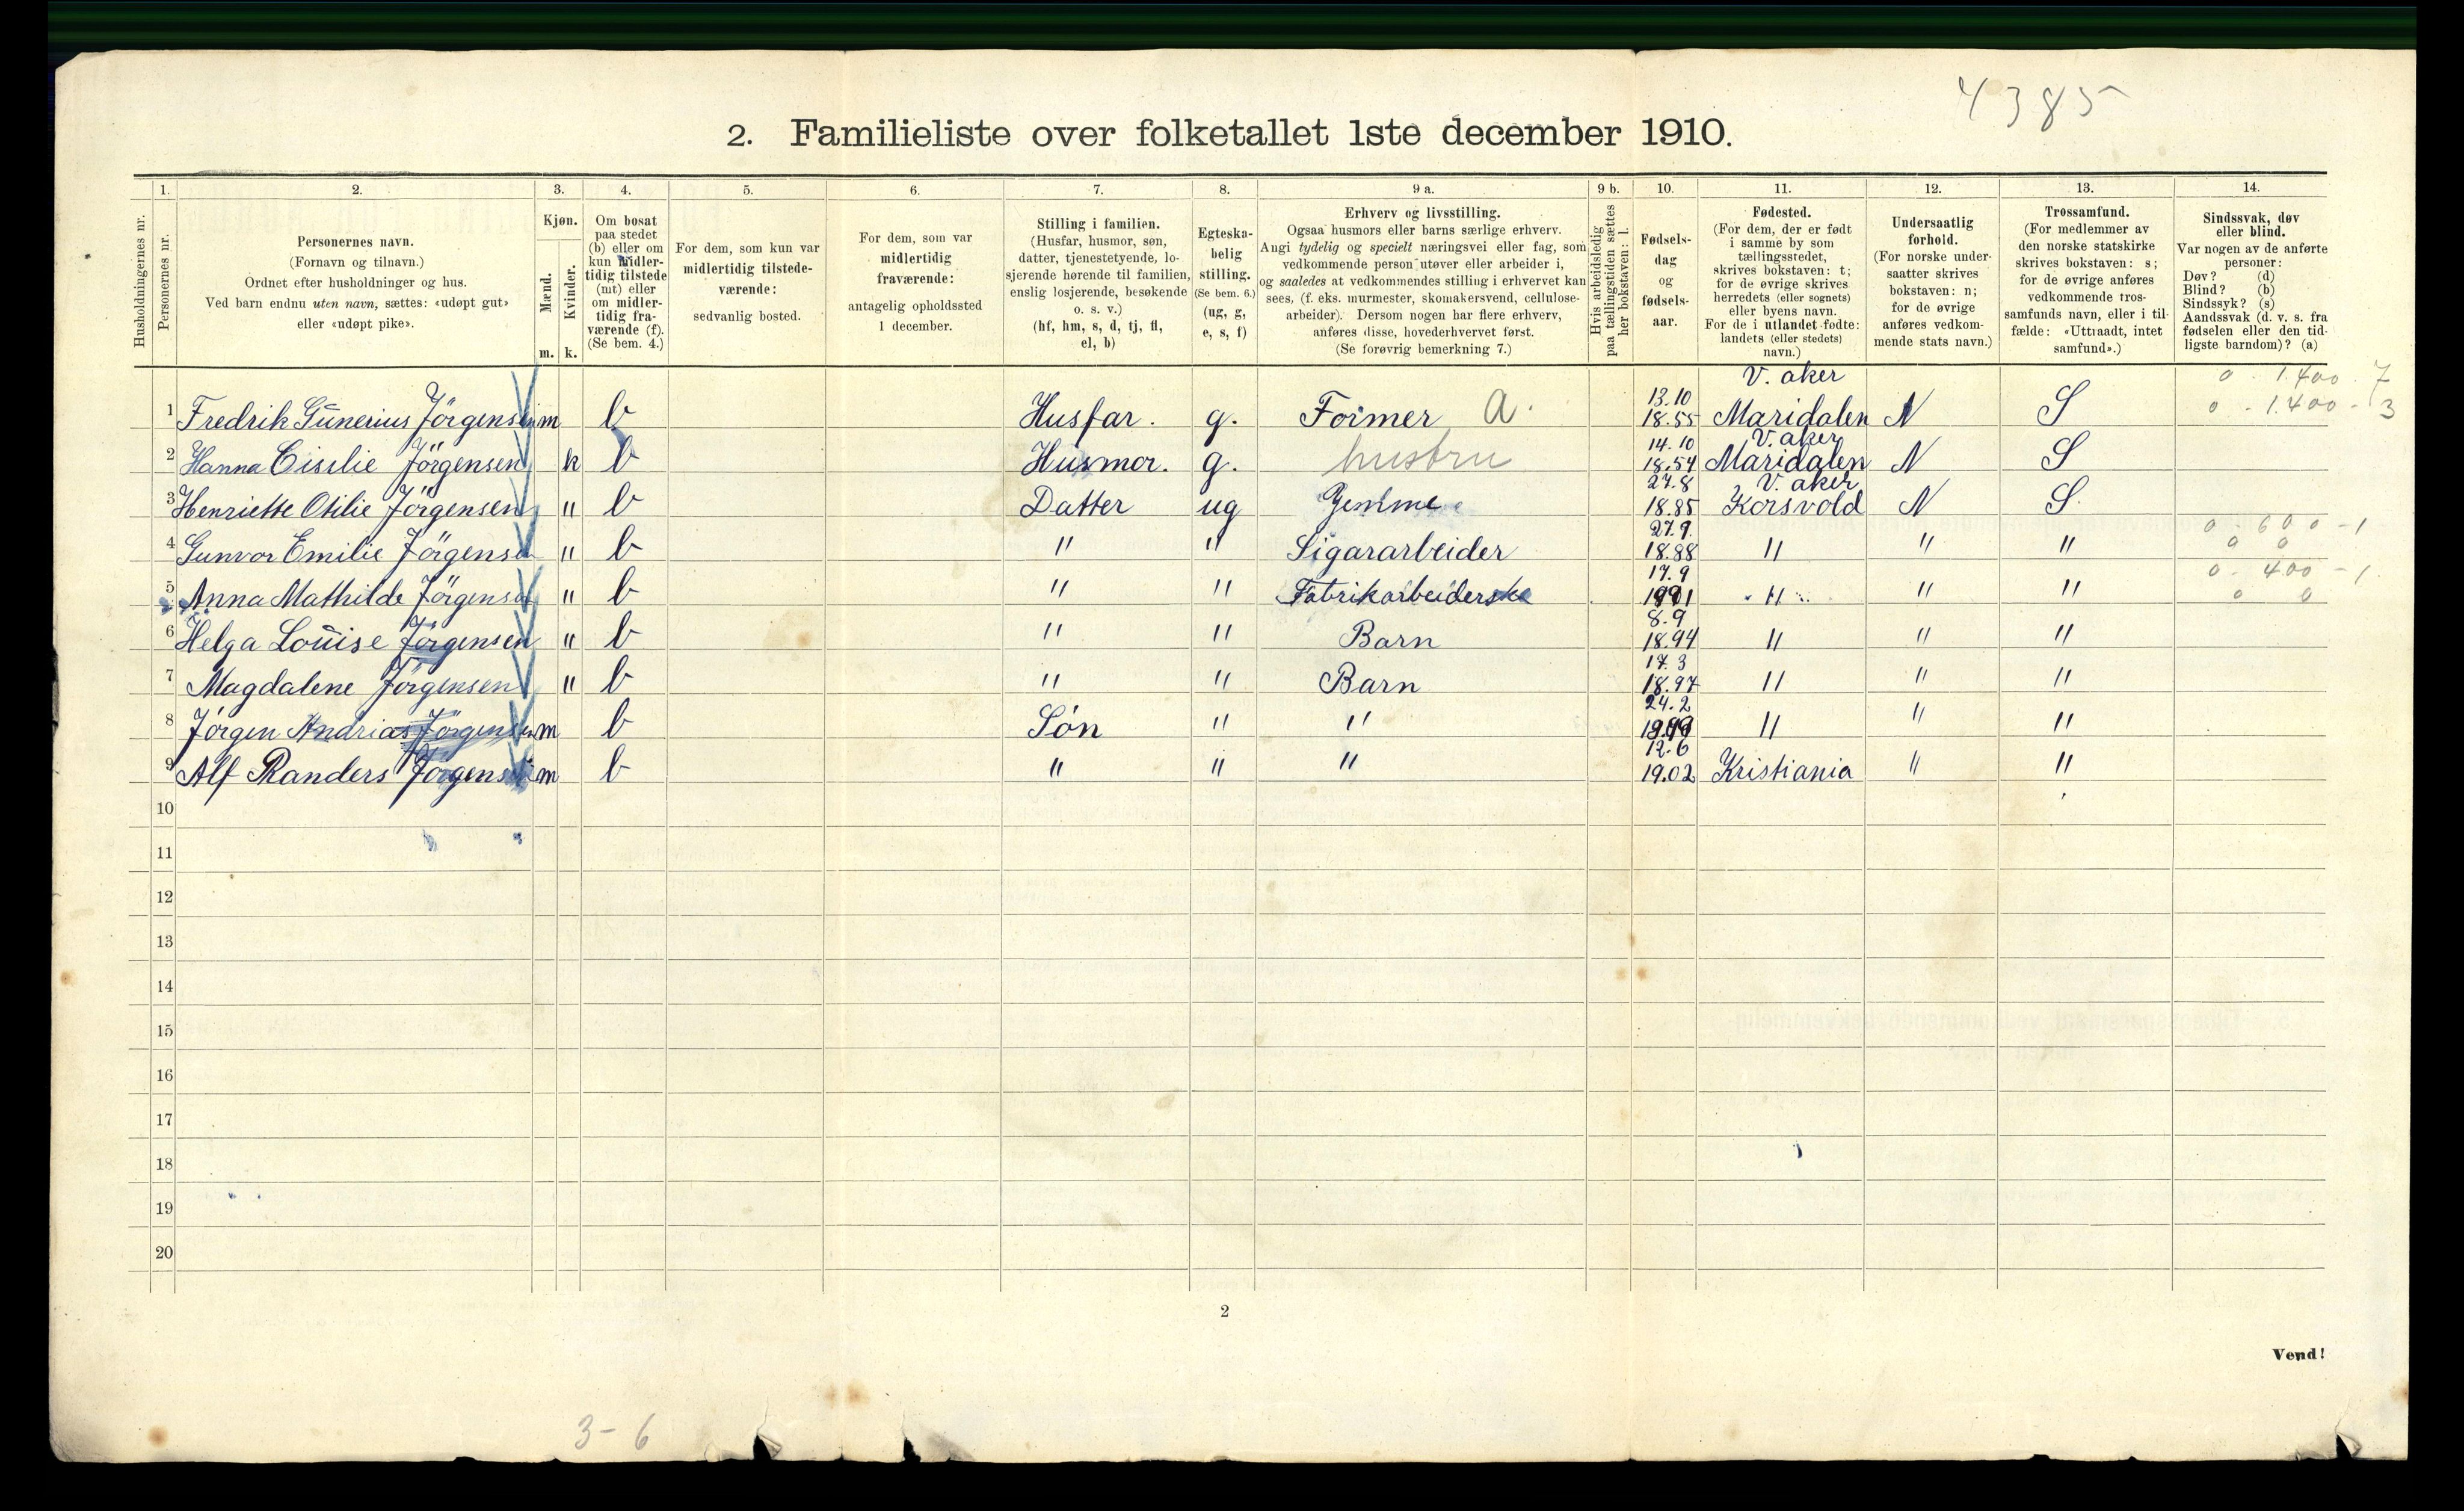 4385
2. Familieliste over folketallet 1ste december 1910.
Husholdningernes nr.
1. Personernes nr.
2. Personernes navn. (Fornavn og tilnavn.) Ordnet efter husholdninger og hus. Ved barn endnu uten navn, sættes: «udøpt gut» eller «udøpt pike».
3. Kjøn. Mænd. m. Kvinder. k.
4. Om bosat paa stedet (b) eller om kun midlertidig tilstede (mt) eller om midlertidig fraværende (f). (Se bem. 4.)
5. For dem, som kun var midlertidig tilstedeværende: sedvanlig bosted.
6. For dem, som var midlertidig fraværende: antagelig opholdssted 1 december.
7. Stilling i familien. (Husfar, husmor, søn, datter, tjenestetyende, losjerende hørende til familien, enslig losjerende, besøkende o. s. v.) (hf, hm, s, d, tj, fl, el, b)
8. Egteskabelig stilling. (Se bem. 6.) (ug, g, e, s, f)
9 a. Erhverv og livsstilling. Ogsaa husmors eller barns særlige erhverv. Angi tydelig og specielt næringsvei eller fag, som vedkommende person utøver eller arbeider i, og saaledes at vedkommendes stilling i erhvervet kan sees, (f. eks. murmester, skomakersvend, cellulosearbeider). Dersom nogen har flere erhverv, anføres disse, hovederhvervet først. (Se forøvrig bemerkning 7.)
9 b. Hvis arbeidsledig paa tællingstiden sættes her bokstaven: l.
10. Fødselsdag og fødselsaar.
11. Fødested. (For dem, der er født i samme by som tællingsstedet, skrives bokstaven: t; for de øvrige skrives herredets (eller sognets) eller byens navn. For de i utlandet fødte: landets (eller stedets) navn.)
12. Undersaatlig forhold. (For norske undersaatter skrives bokstaven: n; for de øvrige anføres vedkommende stats navn.)
13. Trossamfund. (For medlemmer av den norske statskirke skrives bokstaven: s; for de øvrige anføres vedkommende trossamfunds navn, eller i tilfælde: «Uttraadt, intet samfund».)
14. Sindssvak, døv eller blind. Var nogen av de anførte personer: Døv? (d) Blind? (b) Sindssyk? (s) Aandssvak (d. v. s. fra fødselen eller den tidligste barndom)? (a)
1 Fredrik Gunerius Jörgensen m b Husfar. g. Former A. 13.10 18.55 V. aker Maridalen N S 0 - 1.400 - 7 0 - 1.400 - 3
2 Hanna Cisilie Jörgensen k b Husmor. g. hustru 14.10 18.54 V. aker Maridalen N S
3 Henriette Otilie Jörgensen " b Datter ug Hjemme 27.8 18.85 V. aker Korsvold N S.
4 Gunvor Emilie Jörgensen " b " " Sigararbeider 27.9 18.88 " " " 0 - 600 - 1 0 0
5 Anna Mathilde Jörgensen " b " " Fabrikarbeiderske 17.9 " " " 0 - 400 - 1 0 0
6 Helga Louise Jörgensen " b " " Barn 8.9 18.94 " " "
7 Magdalene Jörgensen " b " " Barn 17.3 18.97 " " "
8 Jörgen Andrias Jörgensen m b Sön " " 24.2 " " "
9 Alf Randers Jörgensen m b " " " 12.6 19.02 Kristiania " "
10
11
12
13
14
15
16
17
18
19
20
2
Vend!
3-6